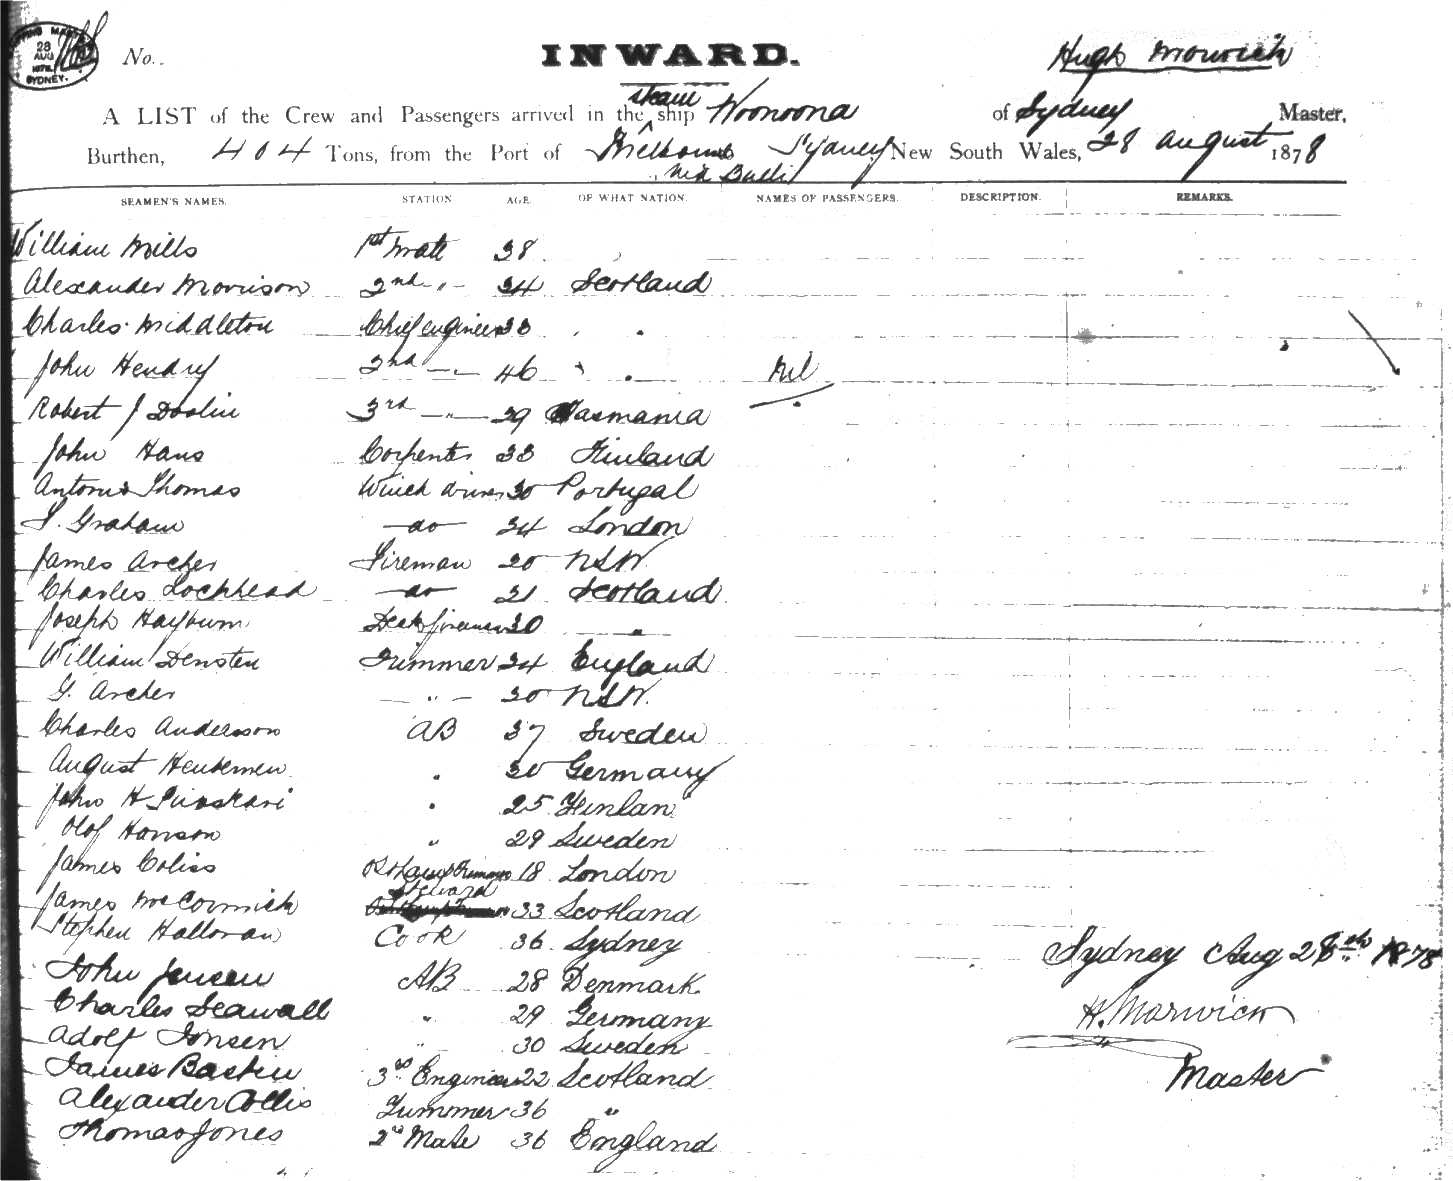 SHIPPING MASTER
28
AUG
1878
SYDNEY.
No.. INWARD. Hugh Morwick
A LIST of the Crew and Passengers arrived in the steam ship Woonoona of Sydney Master,
Burthen, 404 Tons, from the Port of Melbourne Sydney New South Wales, 28 August 1878
via Bulli
SEAMEN'S NAMES. STATION AGE OF WHAT NATION. NAMES OF PASSENGERS. DESCRIPTION. REMARKS.
William Mills 1st Mate 38
Alexander Morrison 2nd " 34 Scotland
Charles Middleton Chief engineer 33 " "
John Hendry 2nd " 46 " " Nil
Robert J Doolin 3rd " 29 Tasmania
John Hans Carpenter 33 Finland
Antonio Thomas Winch driver 30 Portugal
Graham do 34 London
James Archer Fireman 20 NSW
Charles Lochhead do 31 Scotland
Joseph 30 "
William Densten Trimmer 24 England
G. Archer " 20 NSW.
Charles Anderson AB 37 Sweden
August 30 Germany
John H " 25 Finlan
Olof Hanson " 29 Sweden
James Coliss 18 London
James McCormick Steward 33 Scotland
Stephen Halloran Cook 36 Sydney
John Jensen AB 28 Denmark Sydney Aug 28th 1878
Charles Seawall " 29 Germany H. Marwick
Adolf Jonsen " 30 Sweden
James Bastin 3rd Engineer 22 Scotland Master
Alexander Collis Trimmer 36 "
Thomas Jones 2nd Mate 36 England